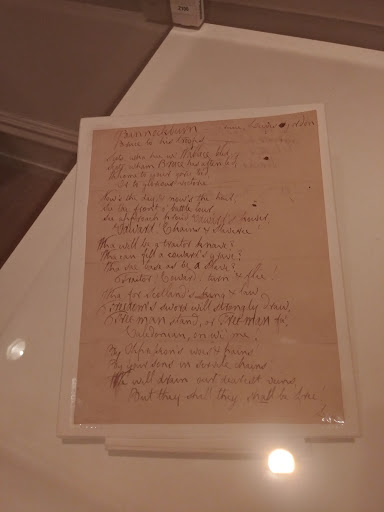 Bannockburn Tune, Lewie Gordon
Bruce to his troops
Scots wha hae wi' Wallace bled,
Scots wham Bruce has aften led,
Welcome to your gory bed
Or to glorious victorie
Now's the day & now's the hour
See the front o' battle lour
See approach proud Edward's power,
Edward! Chains & Slaverie!
Wha will be a traitor knave?
Wha can fill a coward's grave?
Wha sae base as be a slave?
Traitor! Coward! turn & flie!
Wha for Scotland's king & law,
Freedom's sword will strongly draw,
Free-man stand, or Free-man fa',
Caledonian, on wi' me!
By Oppression's woes & pains
By your sons in servile chains
We will drain our dearest veins,
But they shall, they shall be free!